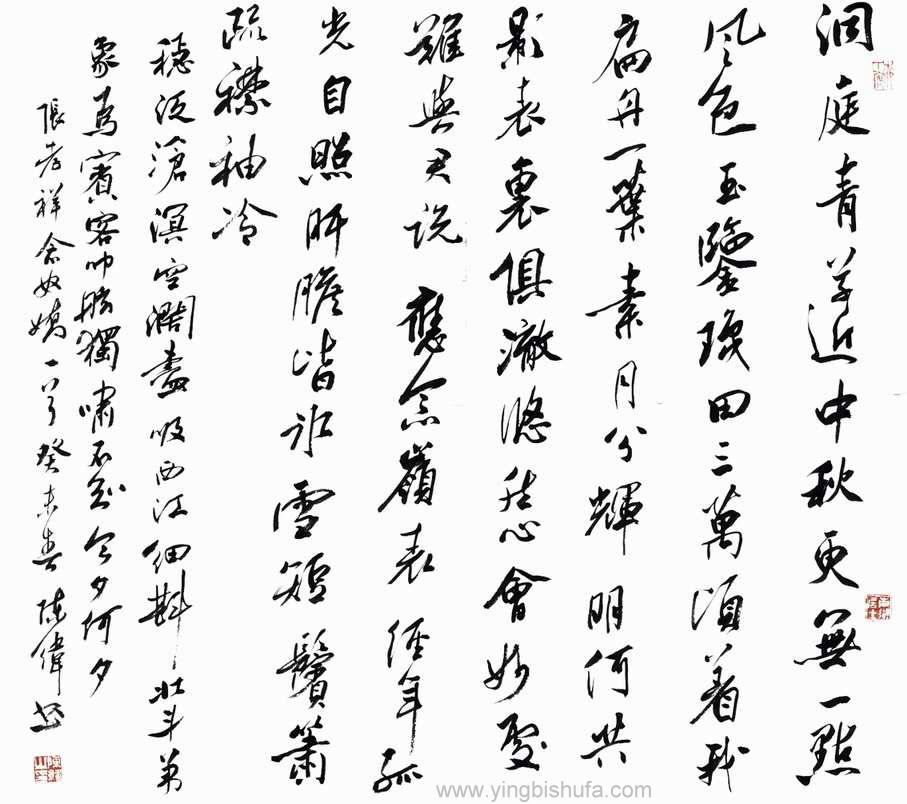 洞庭青草近中秋更無一點
風色玉鑒瓊田三萬頃着我
扁舟一葉素月分輝明河共
影表裏俱澈悠然心會妙處
難與君説應念嶺表經年孤
光自照肝膽皆冰雪短鬢蕭
疏襟袖冷
穩泛滄溟空闊盡吸西江細斟北斗萬
象為賓客叩舷獨嘯不知今夕何夕
張孝祥念奴嬌一首癸未春陳偉書
www.yingbishufa.com